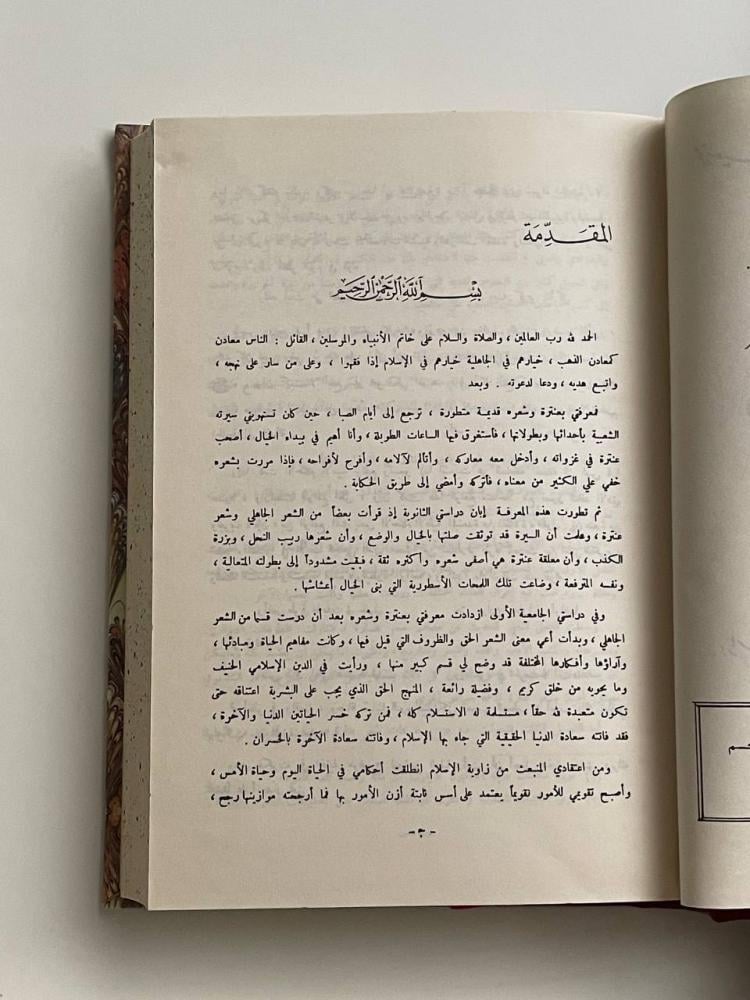 المقدِّمة
بسم الله الرحمن الرحيم
الحمد لله رب العالمين ، والصلاة والسلام على خاتم الأنبياء والمرسلين ، القائل : الناس معادن
كمعادن الذهب ، خيارهم في الجاهلية خيارهم في الإسلام إذا فقهوا ، وعلى من سار على نهجه ،
واتبع هديه ، ودعا لدعوته . وبعد
فمعرفتي بعنترة وشعره قديمة متطورة ، ترجع إلى أيام الصبا ، حين كان تستهويني سيرته
الشعبية بأحداثها وبطولاتها ، فأستغرق فيها الساعات الطويلة ، وأنا أهيم في بيداء الخيال ، أصحب
عنترة في غزواته ، وأدخل معه معاركه ، وأتألم لآلامه ، وأفرح لأفراحه ، فإذا مررت بشعره
خفي علي الكثير من معناه ، فأتركه وأمضي إلى طريق الحكاية .
ثم تطورت هذه المعرفة إبان دراستي الثانوية إذ قرأت بعضاً من الشعر الجاهلي وشعر
عنترة ، وعلمت أن السيرة قد توثقت صلتها بالخيال والوضع ، وأن شعرها ربيب النحل ، وبزرة
الكذب ، وأن معلقة عنترة هي أصفى شعره وأكثره ثقة ، فبقيت مشدوداً إلى بطولته المتعالية ،
ونفسه المترفعة ، وضاعت تلك اللمحات الأسطورية التي بنى الخيال أعشاشها .
وفي دراستي الجامعية الأولى ازدادت معرفتي بعنترة وشعره بعد أن درست قسما من الشعر
الجاهلي ، وبدأت أعي معنى الشعر الحق والظروف التي قيل فيها ، وكانت مفاهيم الحياة ومبادئها ،
وآراؤها وأفكارها المختلفة قد وضع لي قسم كبير منها ، ورأيت في الدين الإسلامي الحنيف
وما يحويه من خلق كريم ، وفضيلة رائعة ، المنهج الحق الذي يجب على البشرية اعتناقه حتى
تكون متعبدة لله حقاً ، مستسلمة له الاستسلام كله ، فمن تركه خسر الحياتين الدنيا والآخرة ،
فقد فاتته سعادة الدنيا الحقيقية التي جاء بها الإسلام ، وفاتته سعادة الآخرة بالخسران .
ومن اعتقادي المنبعث من زاوية الإسلام انطلقت أحكامي في الحياة اليوم وحياة الأمس ،
وأصبح تقويمي للأمور تقويماً يعتمد على أسس ثابتة أزن الأمور بها فما أرجحته موازينها رجح ،
- ج -